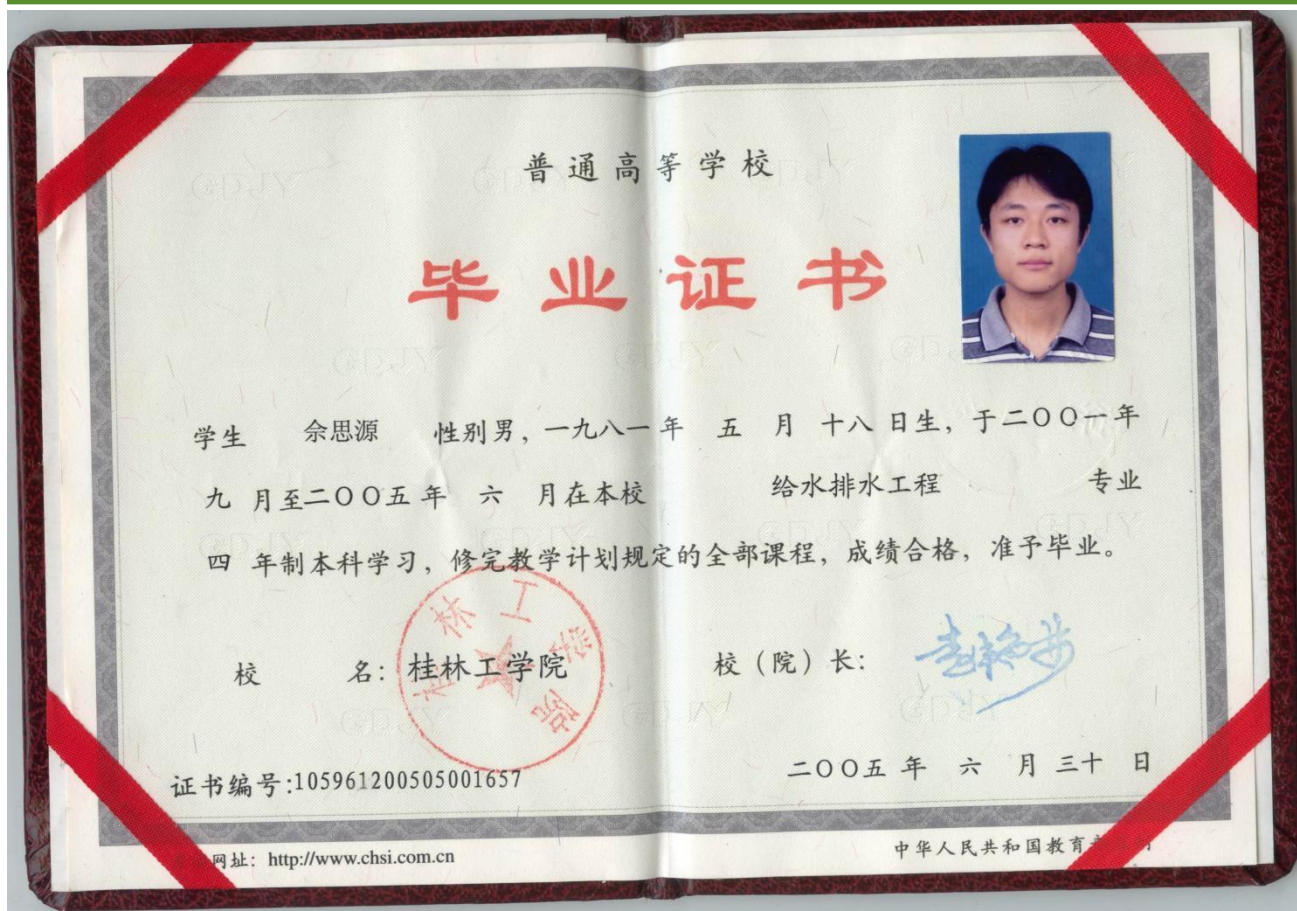 普通高等学校
毕业证书
学生 佘思源 性别男，一九八一年 五 月 十八 日生，于二〇〇一年
九 月至二〇〇五年 六 月在本校 给水排水工程 专业
四 年制本科学习，修完教学计划规定的全部课程，成绩合格，准予毕业。
校 名：桂林工学院 校（院）长：
桂林工学院
证书编号:105961200505001657 二〇〇五 年 六 月 三十 日
网址：http://www.chsi.com.cn 中华人民共和国教育